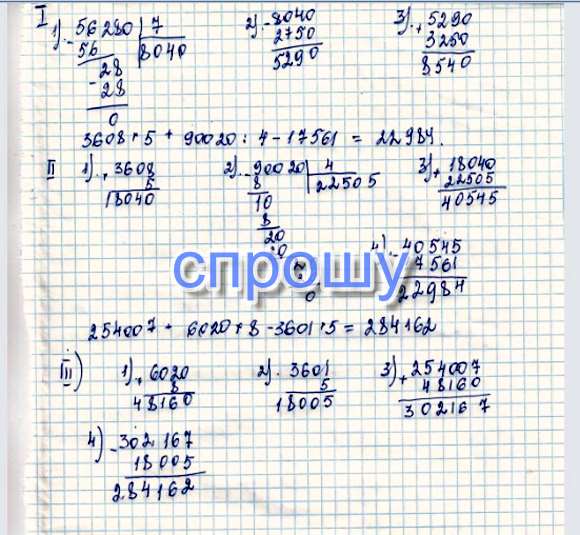 I
1). - 56280 | 7 2). - 8040 3). + 5290
56 8040 2750 3250
- 28 5290 8540
28
0
3608 · 5 + 90020 : 4 - 17561 = 22984.
II 1). · 3608 2). - 90020 | 4 3). + 18040
5 8 22505 22505
18040 10 40545
8
20
4). - 40545
7561
0 22984
спрошу
254007 + 6020 · 8 - 3601 · 5 = 284162
III) 1). · 6020 2). · 3601 3) + 254007
8 5 48160
48160 18005 302167
4) - 302167
18005
284162